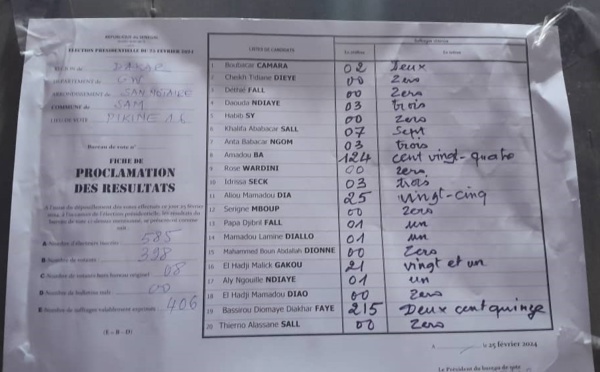 REPUBLIQUE DU SENEGAL
ELECTION PRESIDENTIELLE DU 25 FEVRIER 2024
DAKAR
DEPARTEMENT DE
ARRONDISSEMENT DE
COMMUNE DE SAM
LIEU DE VOTE PIKINE
Bureau de vote n°
FICHE DE
PROCLAMATION
DES RESULTATS
A Nombre d'électeurs inscrits 585
B Nombre de votants 398
C 08
D Nombre de bulletins nuls 00
E Nombre de suffrages valablement exprimés 406
(E = B - D)
LISTES DE CANDIDATS
Suffrages obtenus
En chiffres
En lettres
1 Boubacar CAMARA 02 Deux
2 Cheikh Tidiane DIEYE 00 Zero
3 Déthié FALL 00 Zero
4 Daouda NDIAYE 03 trois
5 Habib SY 00 Zero
6 Khalifa Ababacar SALL 07 Sept
7 Anta Babacar NGOM 03 trois
8 Amadou BA 124 cent vingt-quatre
9 Rose WARDINI 00 zero
10 Idrissa SECK 03 trois
11 Aliou Mamadou DIA 25 vingt-cinq
12 Serigne MBOUP 00 Zero
13 Papa Djibril FALL 01 un
14 Mamadou Lamine DIALLO 01 un
15 Mahammed Boun Abdallah DIONNE 00 Zero
16 El Hadji Malick GAKOU 21 vingt et un
17 Aly Ngouille NDIAYE 01 un
18 El Hadji Mamadou DIAO 00 zero
19 Bassirou Diomaye Diakhar FAYE 215 Deux cent quinze
20 Thierno Alassane SALL 00 Zero
25 février 2024
Le Président du bureau de vote